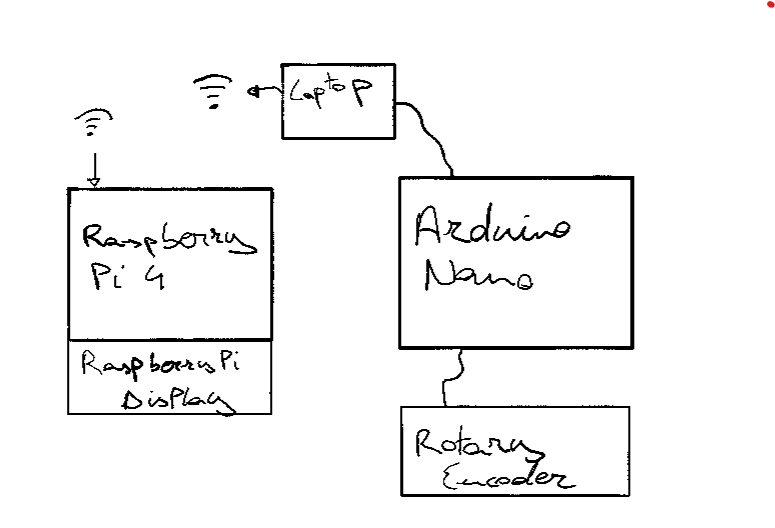 Laptop
Raspberry
Pi 4
Raspberry Pi
Display
Arduino
Nano
Rotary
Encoder